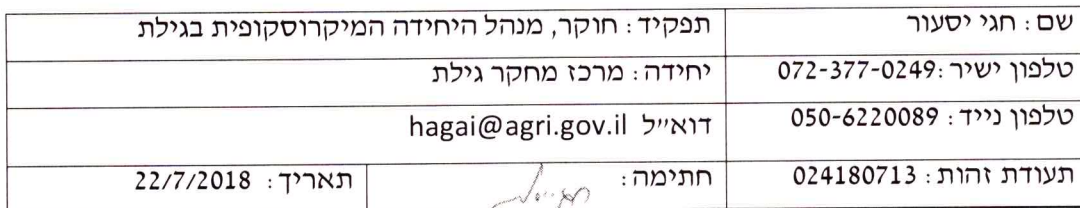 שם: חגי יסעור תפקיד: חוקר, מנהל היחידה המיקרוסקופית בגילת
טלפון ישיר: 072-377-0249 יחידה: מרכז מחקר גילת
טלפון נייד: 050-6220089 דוא״ל hagai@agri.gov.il
תעודת זהות: 024180713 חתימה: תאריך: 22/7/2018